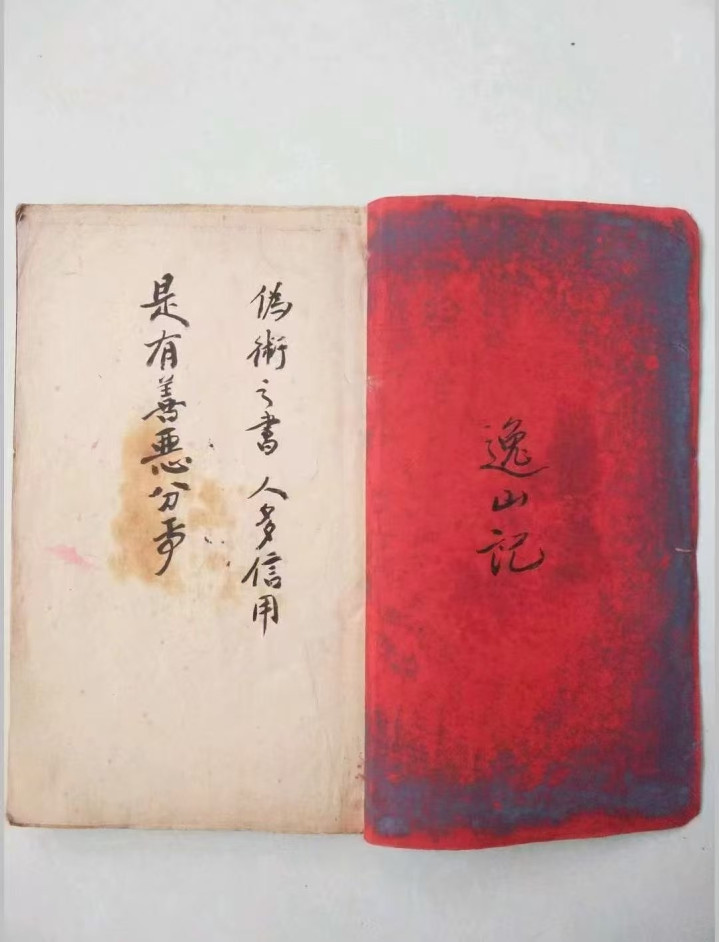 逸山記
偽術之書 人多信用
是有善惡分